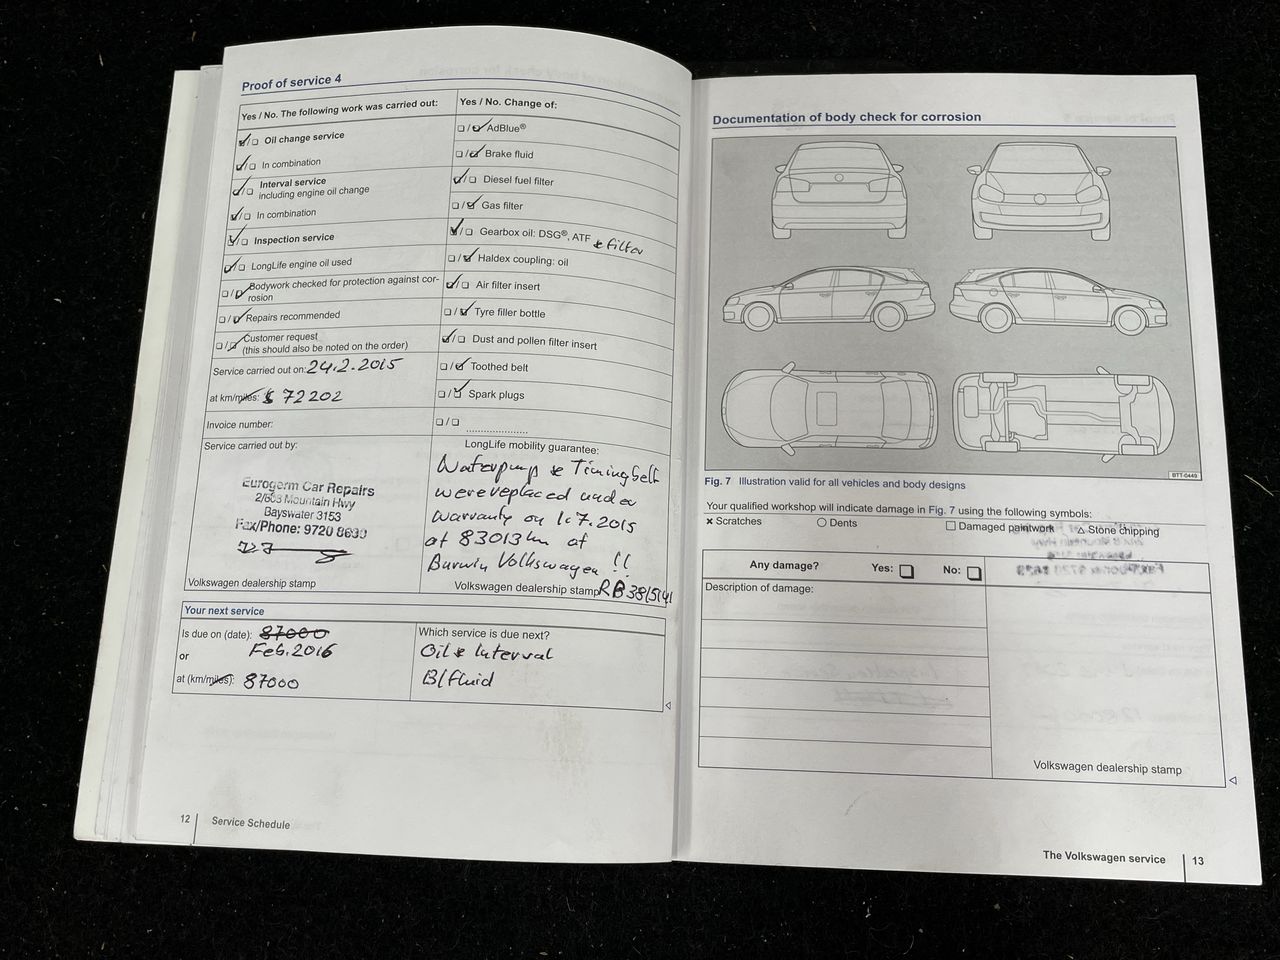 Proof of service 4
Yes / No. The following work was carried out:
☑/☐ Oil change service
☑/☐ In combination
☑/☐ Interval service
including engine oil change
☑/☐ In combination
☑/☐ Inspection service
☑/☐ LongLife engine oil used
☐/☑ Bodywork checked for protection against cor-
rosion
☐/☑ Repairs recommended
☐/☑ Customer request
(this should also be noted on the order)
Service carried out on: 24.2.2015
at km/miles: 72202
Invoice number:
Service carried out by:
Eurogerm Car Repairs
2/603 Mountain Hwy
Bayswater 3153
Fax/Phone: 9720 8630
Volkswagen dealership stamp
Yes / No. Change of:
☐/☑ AdBlue®
☐/☑ Brake fluid
☑/☐ Diesel fuel filter
☐/☑ Gas filter
☑/☐ Gearbox oil: DSG®, ATF & filter
☐/☑ Haldex coupling: oil
☑/☐ Air filter insert
☐/☑ Tyre filler bottle
☑/☐ Dust and pollen filter insert
☐/☑ Toothed belt
☐/☑ Spark plugs
☐/☐ .....................
LongLife mobility guarantee:
Waterpump & Timingbelt
were replaced under
warranty on 1.7.2015
at 83013 km at
Barwin Volkswagen !!
Volkswagen dealership stamp RB 3815141
Your next service
Is due on (date): 87000
Feb. 2016
or
at (km/miles): 87000
Which service is due next?
Oil & Interval
B/fluid
12 Service Schedule
Documentation of body check for corrosion
BTT-0449
Fig. 7 Illustration valid for all vehicles and body designs
Your qualified workshop will indicate damage in Fig. 7 using the following symbols:
× Scratches ○ Dents □ Damaged paintwork △ Stone chipping
Any damage? Yes: ☐ No: ☐
Description of damage:
Volkswagen dealership stamp
The Volkswagen service 13